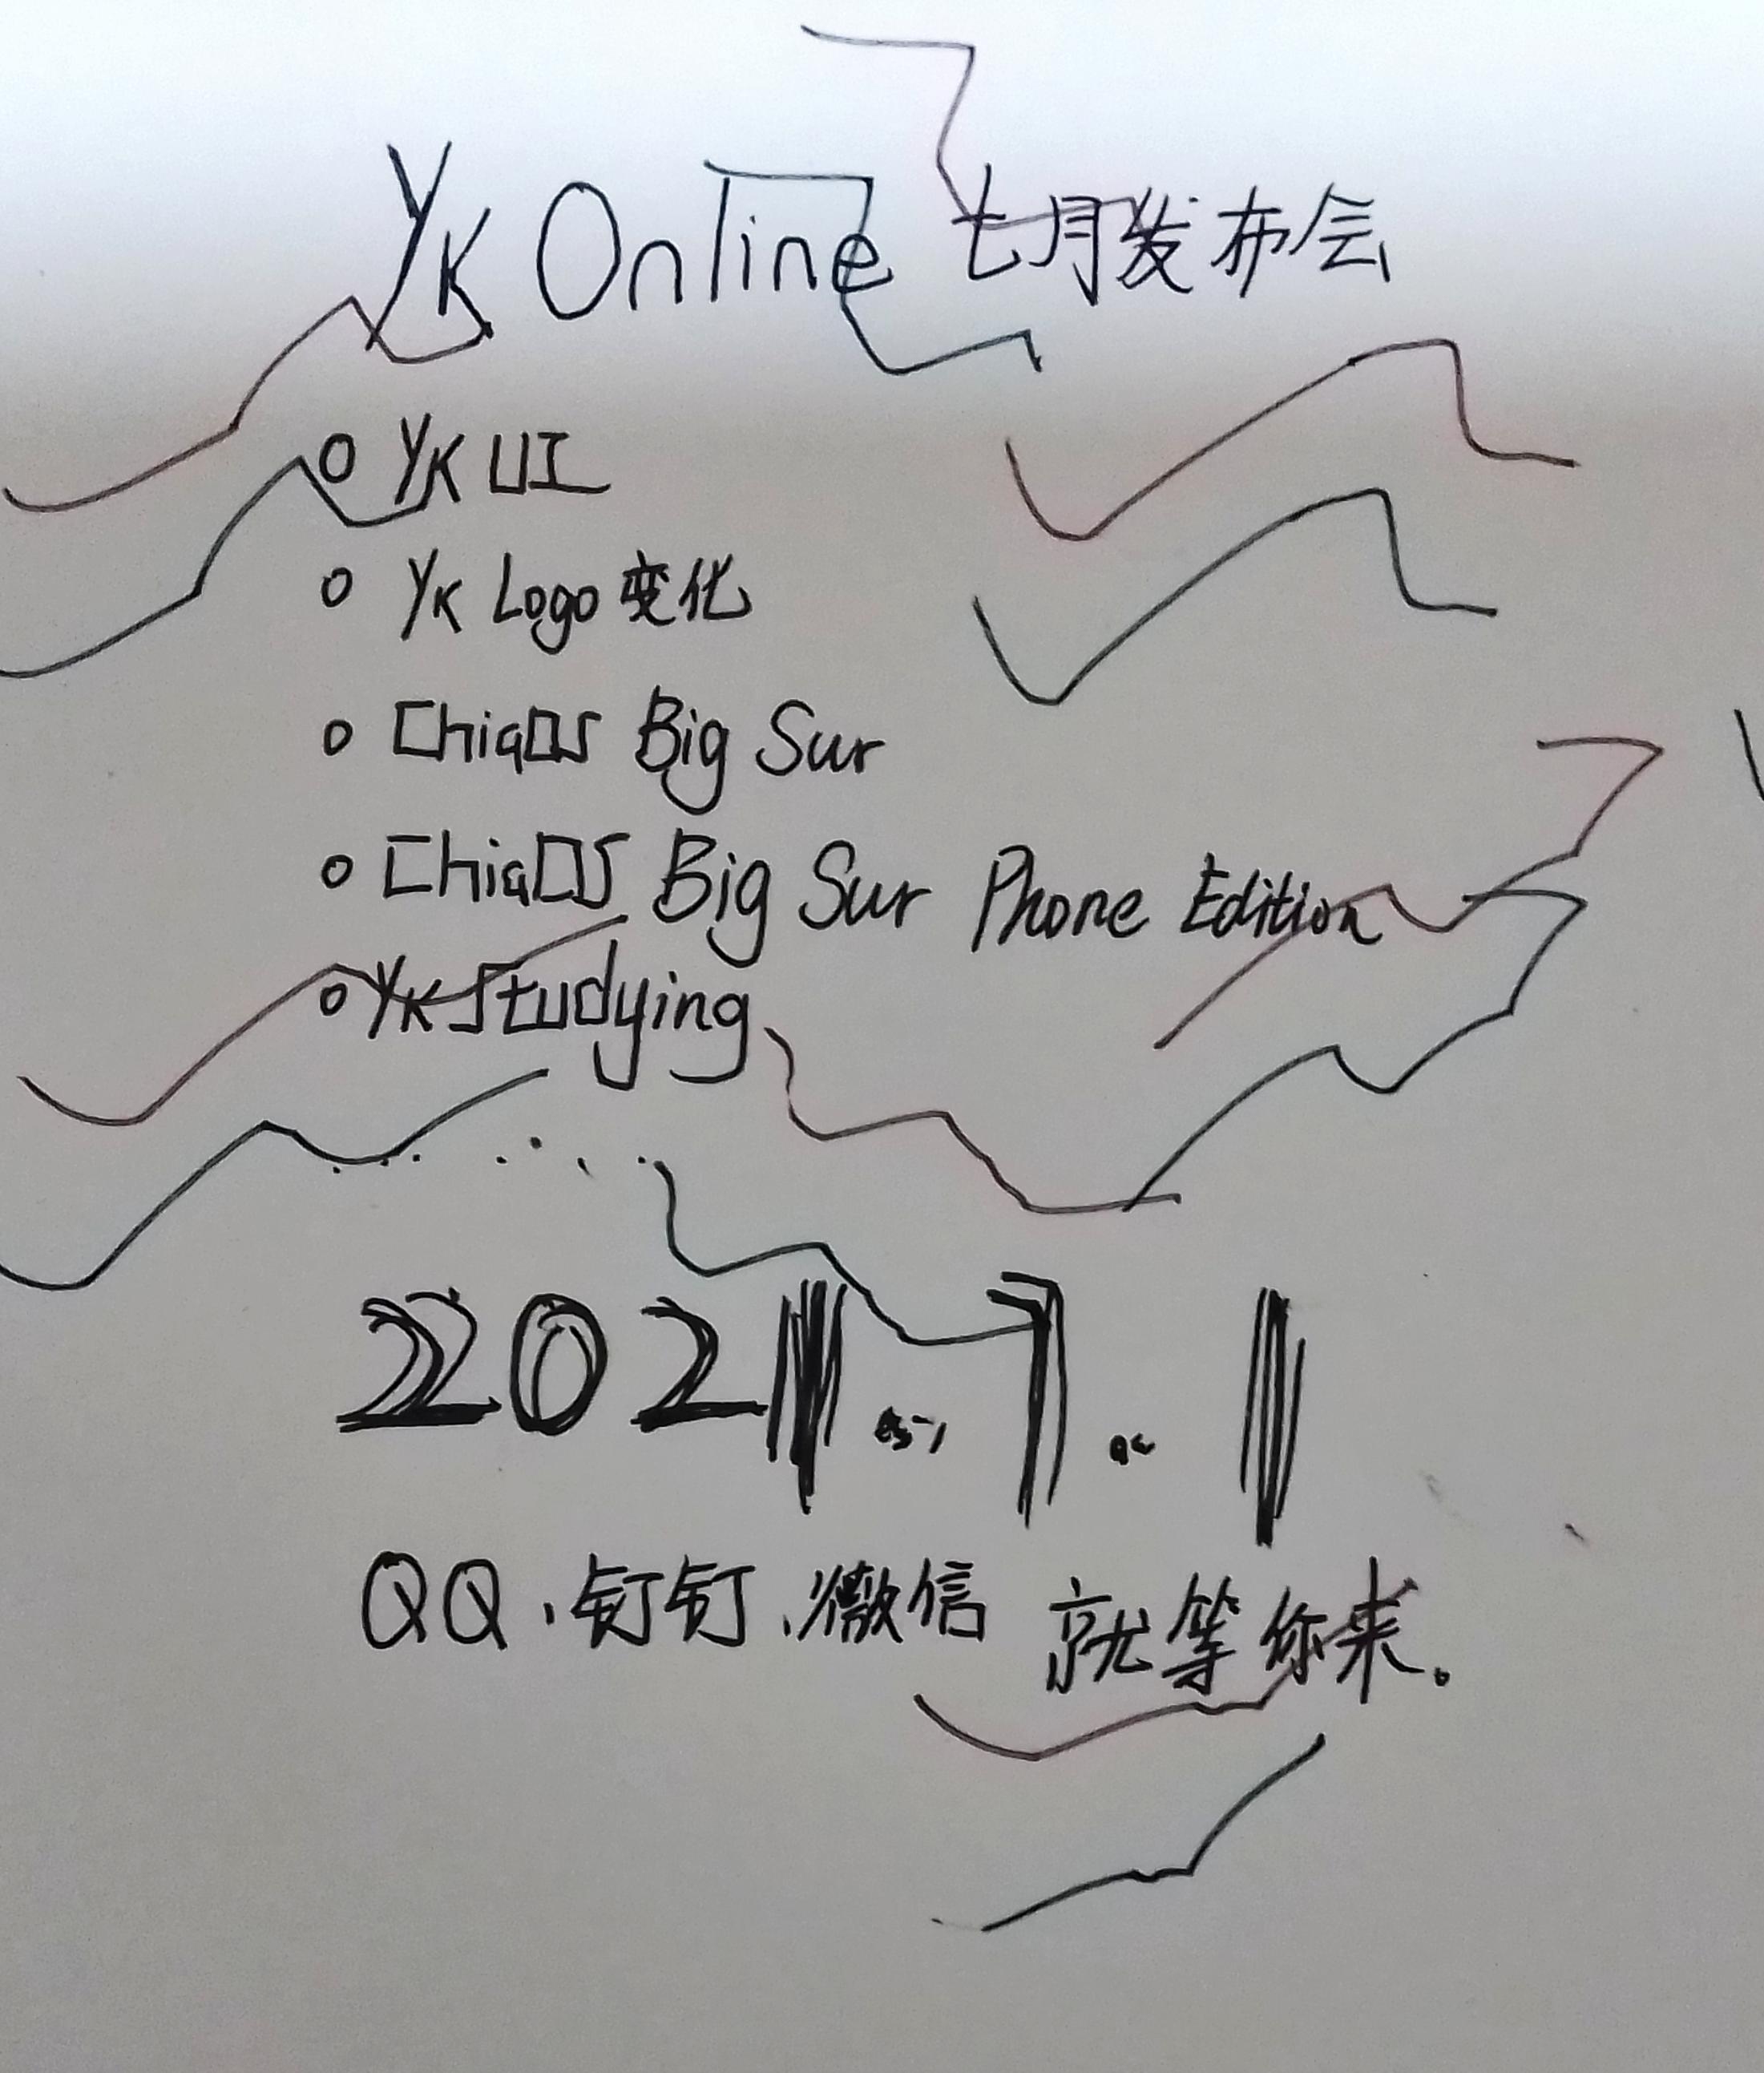 YK Online 七月发布会
○ YK UI
○ YK Logo 变化
○ ChiaOS Big Sur
○ ChiaOS Big Sur Phone Edition
○ YK Studying
... . . . .
2021.7.1
QQ、钉钉、微信 就等你来。